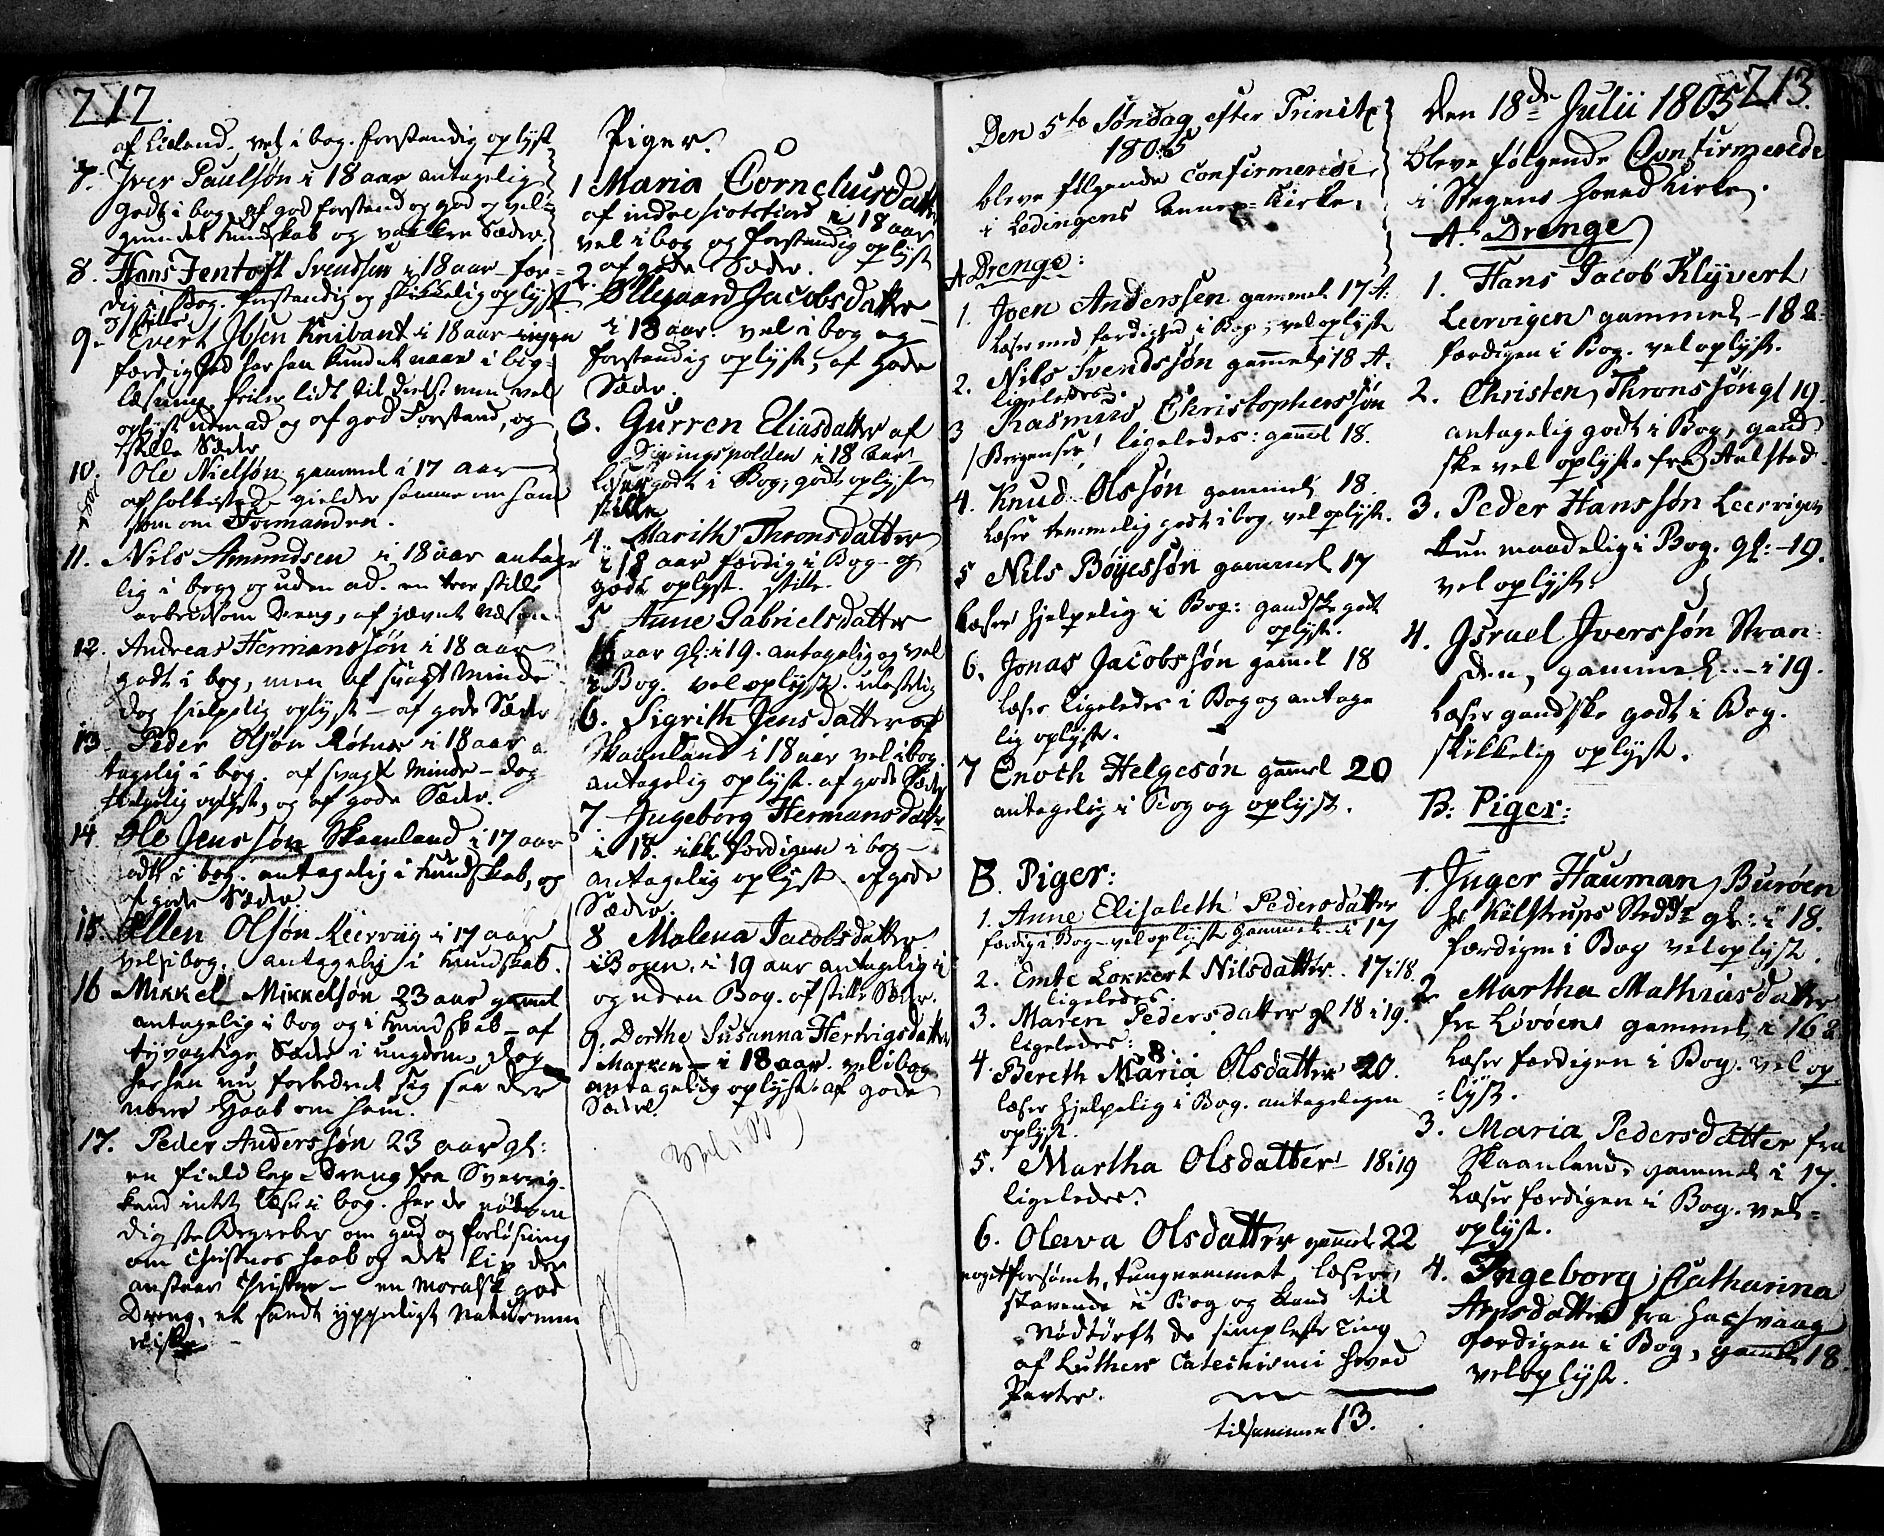 212.
af Lieland. vel i bog. forstandig oplyst
7. Iver Paulsøn i 18 aar antagelig
godt i bog, af god forstand og god og vel-
grundet kundskab og vakkre Sæder.
8. Hans Jentoft Svendsen i 18 aar - fær-
dig i Bog. forstandig og skikkelig oplyst
stille
9. Evert Ibsen Knibant i 18 aar - ingen
færdighed har han kundet naae i bog-
læsning, feiler lidt til deels. men vel
oplyst udenad og af god Forstand, og
stille Sæder
10. Ole Nielsøn gammel i 17 aar
af gielder samme om ham
som om Formanden.
11. Nils Amundsen i 18 aar antage
lig i bog og uden ad. en troe stille
arbeidsom Dreng, af jævnt Væsen
12. Andreas Hermanssøn i 18 aar
godt i bog, men af svagt Minde
dog hielpelig oplyst - af gode Sæder
13. Peder Olsøn Røtnes i 18 aar a
tagelig i bog. af svagt Minde - dog
hielpelig oplyst, og af gode Sæder.
14. Ole Jenssøn Skaanland i 17 aar
godt i bog. antagelig i kundskab, og
af gode Sæder.
15. Ellen Olsøn Leervig i 17 aar
vel i bog, antagelig i kundskab.
16 Mikkel Mikkelsøn 23 aar gammel
antagelig i bog og i kundskab - af
tyvagtige Sæder i ungdom, dog
har han nu forbedret sig saa der
være Haab om ham.
17. Peder Anderssøn 23 aar gl:
en field lap-Dreng fra Sverrig.
kand intet læse i bog. har de nødven
digste Begreber om gud og forløsning
om Christnes haab og det liv der
anstaar Christne - en Moralsk god
Dreng, et sandt ypperligt Naturmen
neske
Piger.
1 Maria Cornelius Datter
af indre i 18 aar
vel i bog og forstandig oplyst
af gode Sæder.
2. Ellegaard Jacobsdatter
i 18 aar. vel i bog og
forstandig oplyst, af gode
Sæder.
3. Gurren Eliasdatter af
Dypingspolden i 18 aar
læser godt i Bog, godt oplyst
stille
4. Marith Thronsdatter
i 18 aar færdig i Bog og
godt oplyst. stille.
5 Anne Gabrielsdatter
16 aar gl: i 19. antagelig og vel
i Bog. vel oplyst.
6. Sigrith Jensdatter af
Skaanland i 18 aar vel i bog.
antagelig oplyst. af gode Sæder
7. Ingeborg Hermansdatter
i 18. ikke færdigen i bog -
antagelig oplyst af gode
Sæder.
8 Malena Jacobsdatter
i Bogen. i 19 aar antagelig i
og uden Bog. af stille Sæder.
9. Dorthe Susanna Hertvigsdatter
Marken - i 18 aar. vel i bog
antagelig oplyst. af gode
Sæder
Den 5te Søndag efter Trinit:
1805
bleve følgende confirmerede
i Lødingens Annex-Kirke.
A. Drenge:
1. Joen Anderssen gammel 17 A:
læser med færdighed i Bog, vel oplyst
2. Nils Svendssøn gammel 18 A.
ligeledes.
3 Rasmus Christopherssøn
/Bergenser/ ligeledes: gammel 18.
4. Knud Olssøn gammel 18
læser temmelig godt i bog. vel oplyst.
5 Nils Bøyessøn gammel 17
læser hjelpelig i Bog: gandske godt
oplyst.
6. Jonas Jacobssøn gamel 18
læser ligeledes i Bog og antage
lig oplyst.
7 Enoch Helgesøn gamel 20
antagelig i Bog og oplyst.
B. Piger:
1. Anne Elisabeth Pedersdatter
færdig i Bog - vel oplyst gammel i 17
2. Emte Lokkert Nilsdatter. 17 i 18.
ligeledes.
3. Maren Pedersdatter gl 18 i 19.
ligeledes:
4. Bereth Maria Olsdatter 20.
læser hjelpelig i Bog. antageligen
oplyst.
5. Martha Olsdatter - 18 i 19
ligeledes.
6. Olava Olsdatter gammel 22
noget forsømt, tungnemmet, læser
stavende i Bog og kand til
Nødtørft de simpleste Ting
af Luthers Catechismi hoved
Parter.
tilsammen 13.
213.
Den 18de Julii 1805
bleve følgende Confirmerede
i Stegens Hoved Kirke.
A. Drenge
1. Hans Jacob Klyvert
Leervigen gammel - 18 a:
færdigen i Bog. vel oplyst.
2. Christen Thronssøn gl 19.
antagelig godt i Bog, gand
ske vel oplyst. fra Aalstad
3. Peder Hanssøn Leervigen
kun maadelig i Bog. gl: - 19.
vel oplyst.
4. Israel Iverssøn Stran-
den, gammel. - i 19.
læser gandske godt i Bog.
skikkelig oplyst.
B: Piger:
1. Inger Hauman, Burøen
Hr Kilstrups Steddtr gl: i 18.
færdigen i Bog vel oplyst.
2 Martha Mathiasdatter
fra Løvøen gammel i 16 a
læser færdigen i Bog. vel op
:lyst.
3. Maria Pedersdatter fra
Skaanland, gammel i 17.
læser færdigen i Bog. vel-
oplyst.
4. Ingeborg Catharina
Arnsdatter fra
færdigen i Bog, gamel 18
vel oplyst.